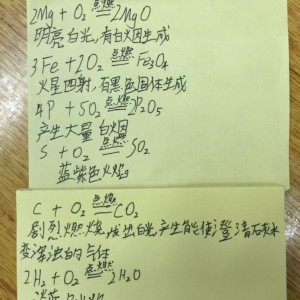 2Mg + O₂ 点燃 2MgO
明亮白光,有白烟生成
3Fe + 2O₂ 点燃 Fe₃O₄
火星四射,有黑色固体生成
4P + 5O₂ 点燃 2P₂O₅
产生大量白烟
S + O₂ 点燃 SO₂
蓝紫色火焰
C + O₂ 点燃 CO₂
剧烈燃烧,发出白光,产生能使澄清石灰水
变浑浊的气体
2H₂ + O₂ 点燃 2H₂O